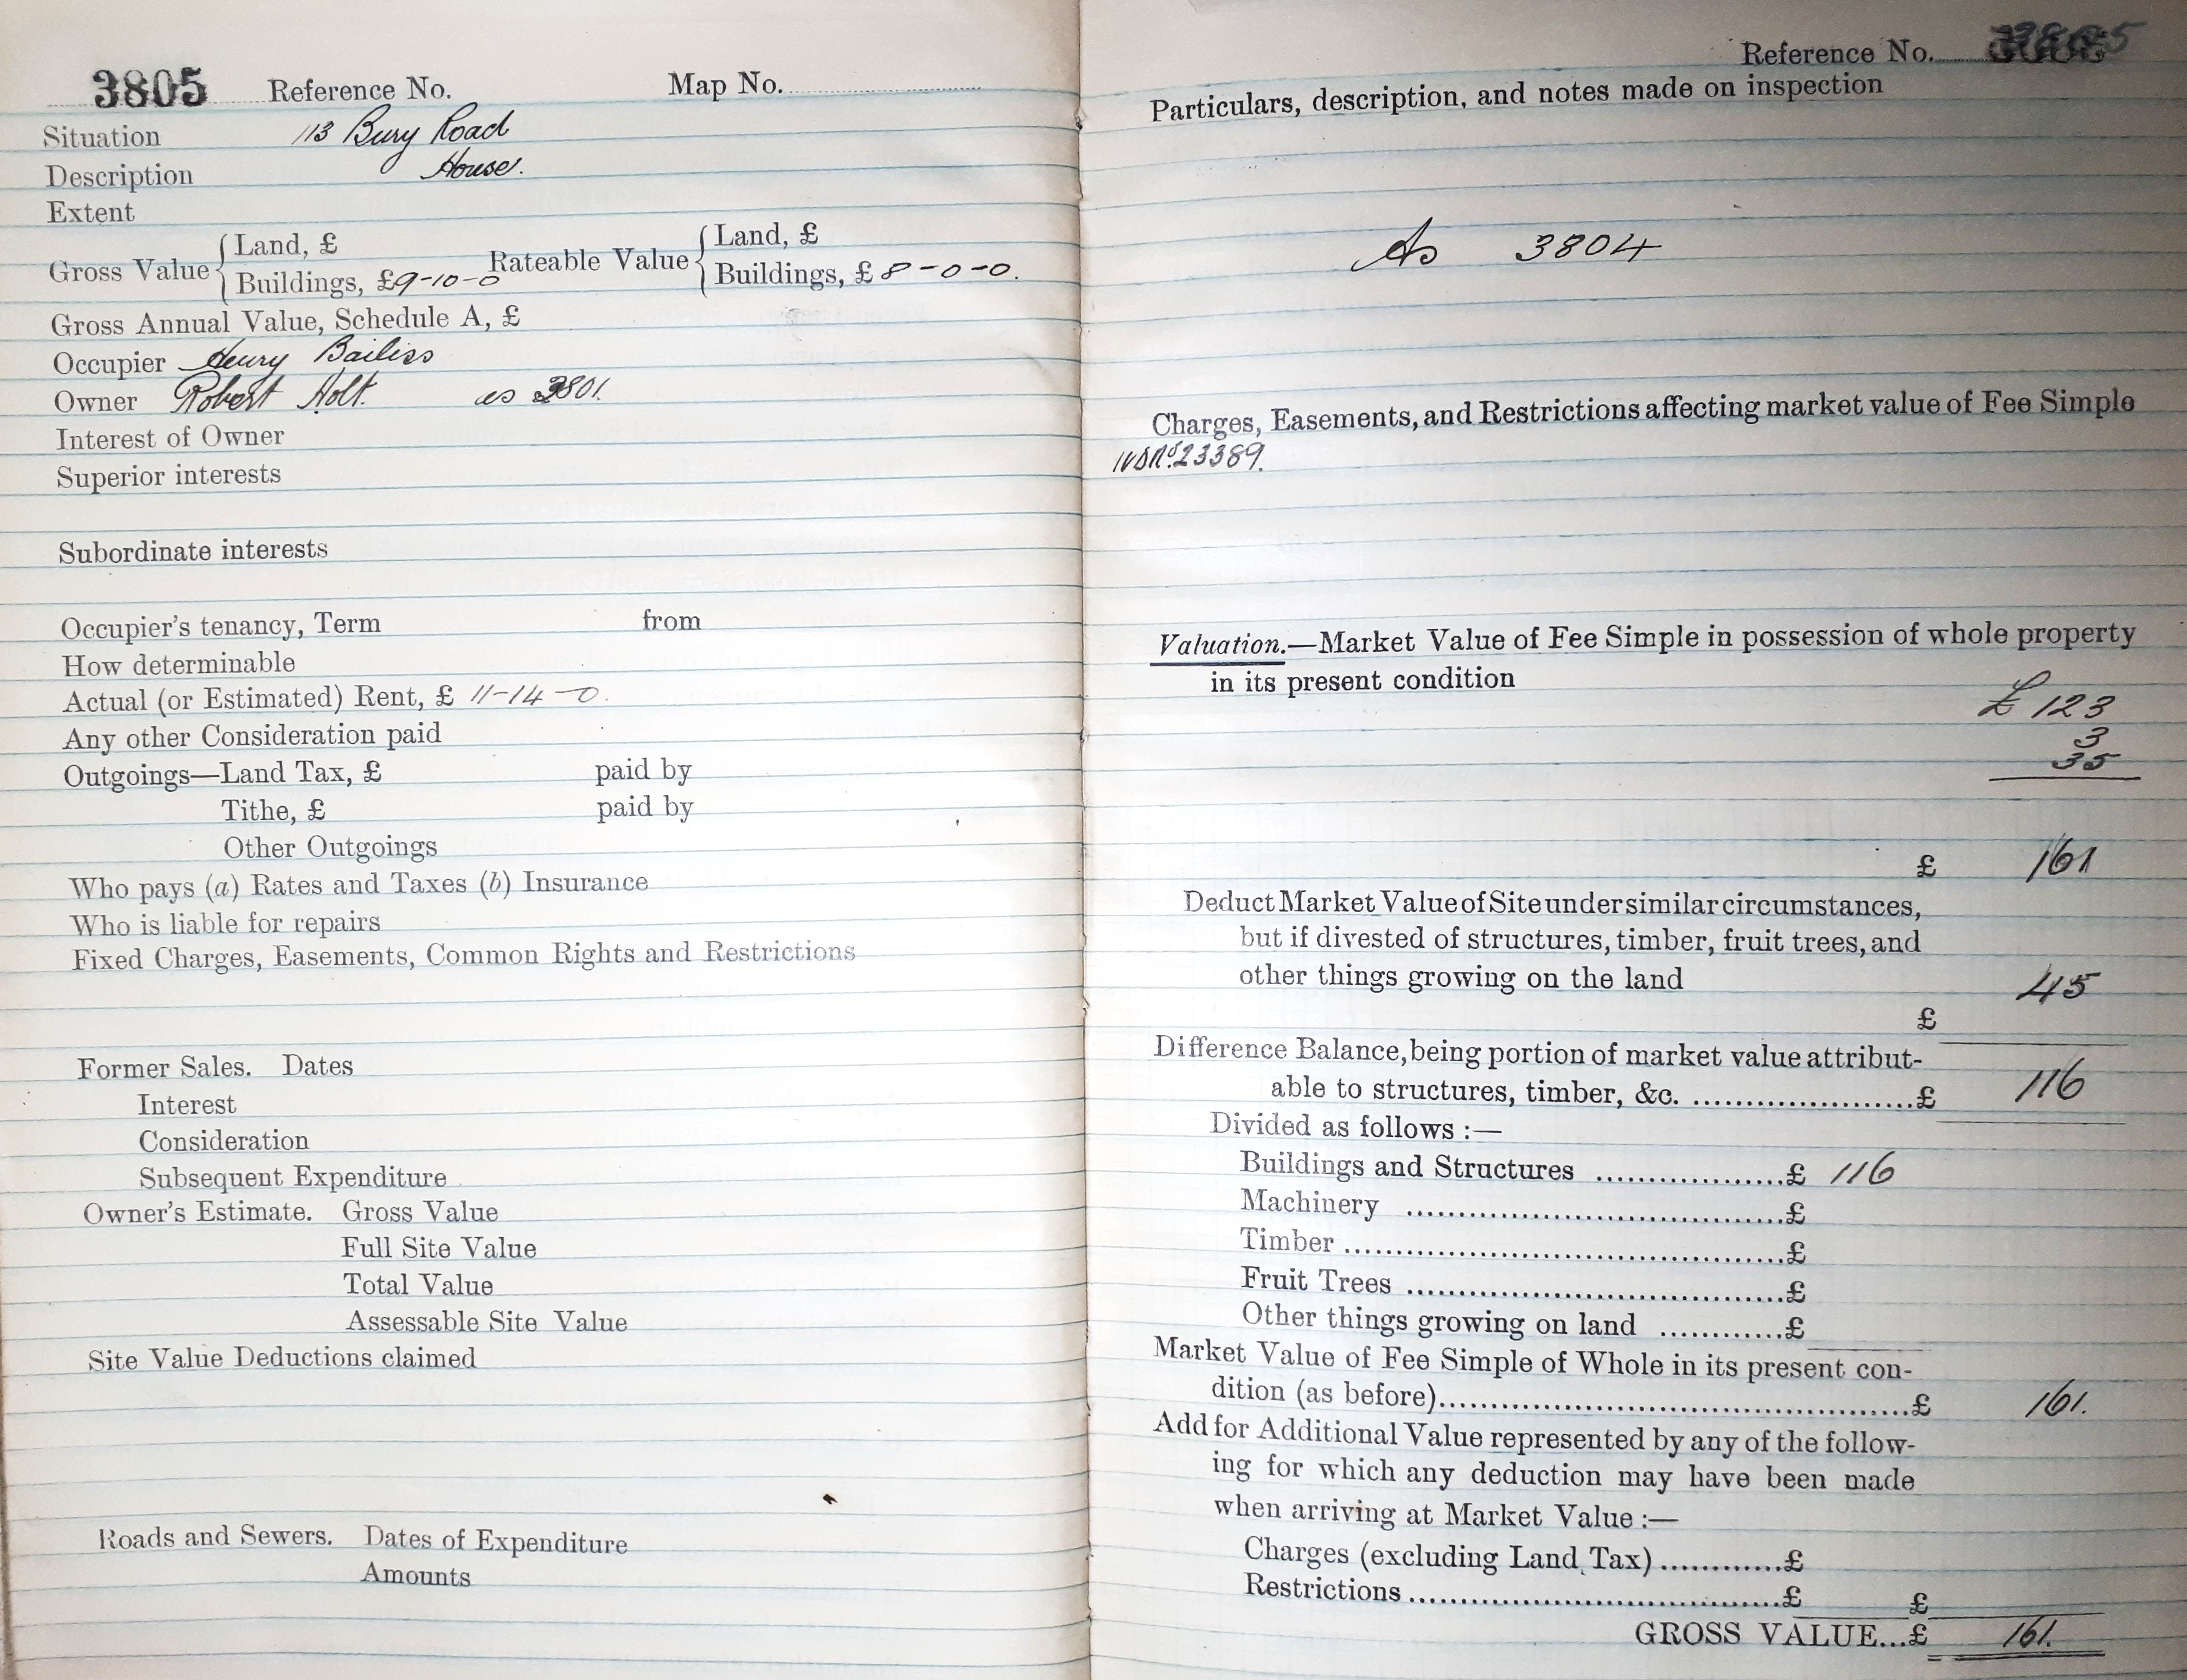 3805 Reference No. Map No.
Situation 113 Bury Road
Description House.
Extent
Gross Value { Land, £ Rateable Value { Land, £
Buildings, £9-10-0 Buildings, £ 8-0-0.
Gross Annual Value, Schedule A, £
Occupier Henry Bailiss
Owner Robert Holt. as 3801.
Interest of Owner
Superior interests
Subordinate interests
Occupier's tenancy, Term from
How determinable
Actual (or Estimated) Rent, £ 11-14-0.
Any other Consideration paid
Outgoings—Land Tax, £ paid by
Tithe, £ paid by
Other Outgoings
Who pays (a) Rates and Taxes (b) Insurance
Who is liable for repairs
Fixed Charges, Easements, Common Rights and Restrictions
Former Sales. Dates
Interest
Consideration
Subsequent Expenditure
Owner's Estimate. Gross Value
Full Site Value
Total Value
Assessable Site Value
Site Value Deductions claimed
Roads and Sewers. Dates of Expenditure
Amounts
Reference No.
Particulars, description, and notes made on inspection
As 3804
Charges, Easements, and Restrictions affecting market value of Fee Simple
23389.
Valuation.—Market Value of Fee Simple in possession of whole property
in its present condition
£ 123
3
35
£ 161
Deduct Market Value of Site under similar circumstances,
but if divested of structures, timber, fruit trees, and
other things growing on the land 45
£
Difference Balance, being portion of market value attribut-
able to structures, timber, &c. ......................£ 116
Divided as follows :—
Buildings and Structures ...................£ 116
Machinery ......................................£
Timber ............................................£
Fruit Trees ......................................£
Other things growing on land ............£
Market Value of Fee Simple of Whole in its present con-
dition (as before)................................................£ 161.
Add for Additional Value represented by any of the follow-
ing for which any deduction may have been made
when arriving at Market Value :—
Charges (excluding Land Tax) ............£
Restrictions ......................................£ £
GROSS VALUE...£ 161.